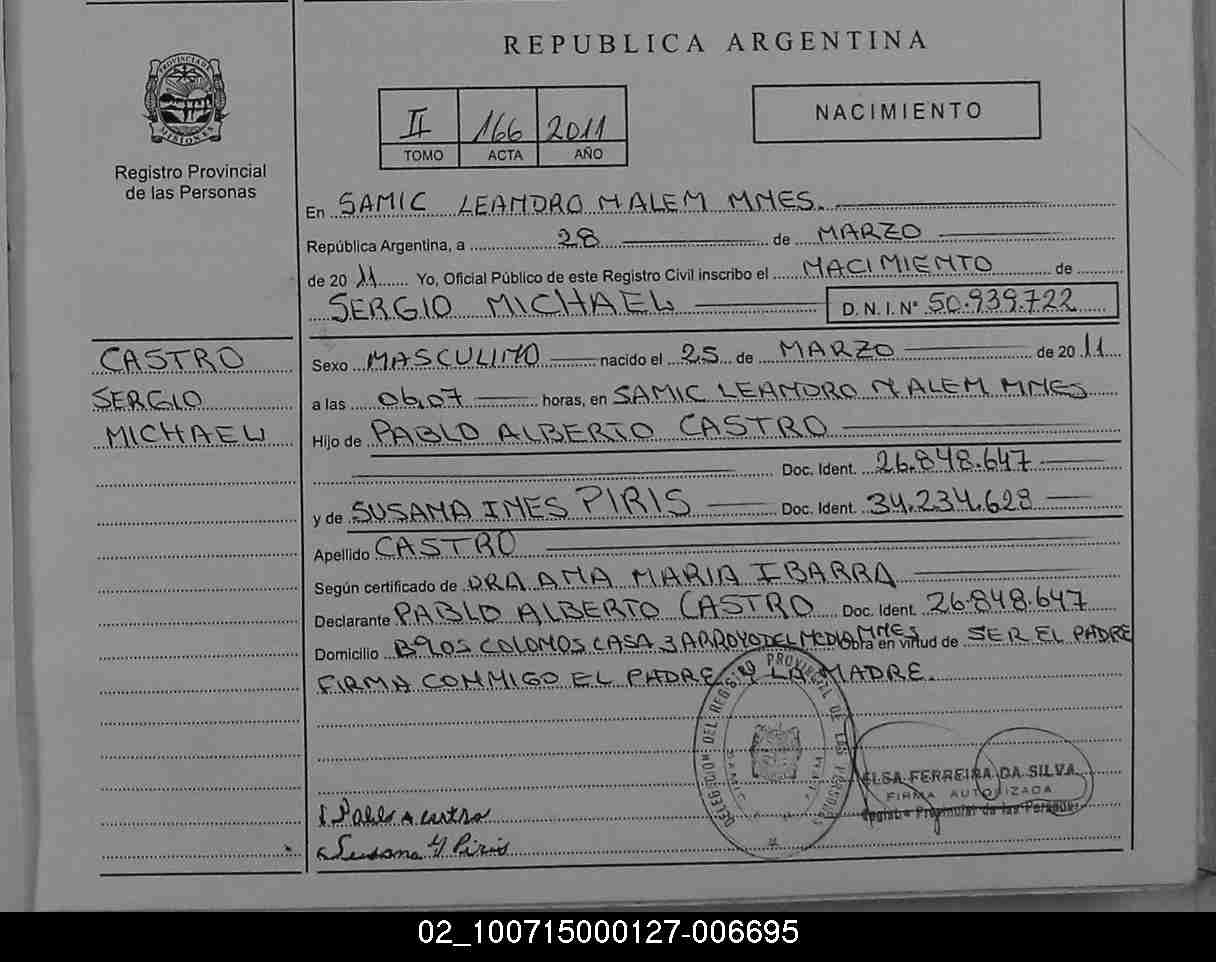 REPUBLICA ARGENTINA
PROVINCIA DE
MISIONES
Registro Provincial
de las Personas
II 166 2011
TOMO ACTA AÑO
NACIMIENTO
En SAMIC LEANDRO N ALEM MNES.
República Argentina, a 28 de MARZO
de 2011 Yo, Oficial Público de este Registro Civil inscribo el NACIMIENTO de
SERGIO MICHAEL D. N. I. Nº 50.939.722
CASTRO
SERGIO
MICHAEL
Sexo MASCULINO nacido el 25 de MARZO de 2011
a las 06,07 horas, en SAMIC LEANDRO N ALEM MNES
Hijo de PABLO ALBERTO CASTRO
Doc. Ident. 26.848.647
y de SUSANA INES PIRIS Doc. Ident. 34.234.628
Apellido CASTRO
Según certificado de DRA ANA MARIA IBARRA
Declarante PABLO ALBERTO CASTRO Doc. Ident. 26.848.647
Domicilio Bº LOS COLONOS CASA 3 ARROYO DEL MEDIO MNES Obra en virtud de SER EL PADRE
FIRMA CONMIGO EL PADRE Y LA MADRE.
DELEGACION DEL REGISTRO PROVINCIAL DE LAS PERSONAS
ELSA FERREIRA DA SILVA
FIRMA AUTORIZADA
Registro Provincial de las Personas
Pablo A castro
Susana Y Piris
02_100715000127-006695